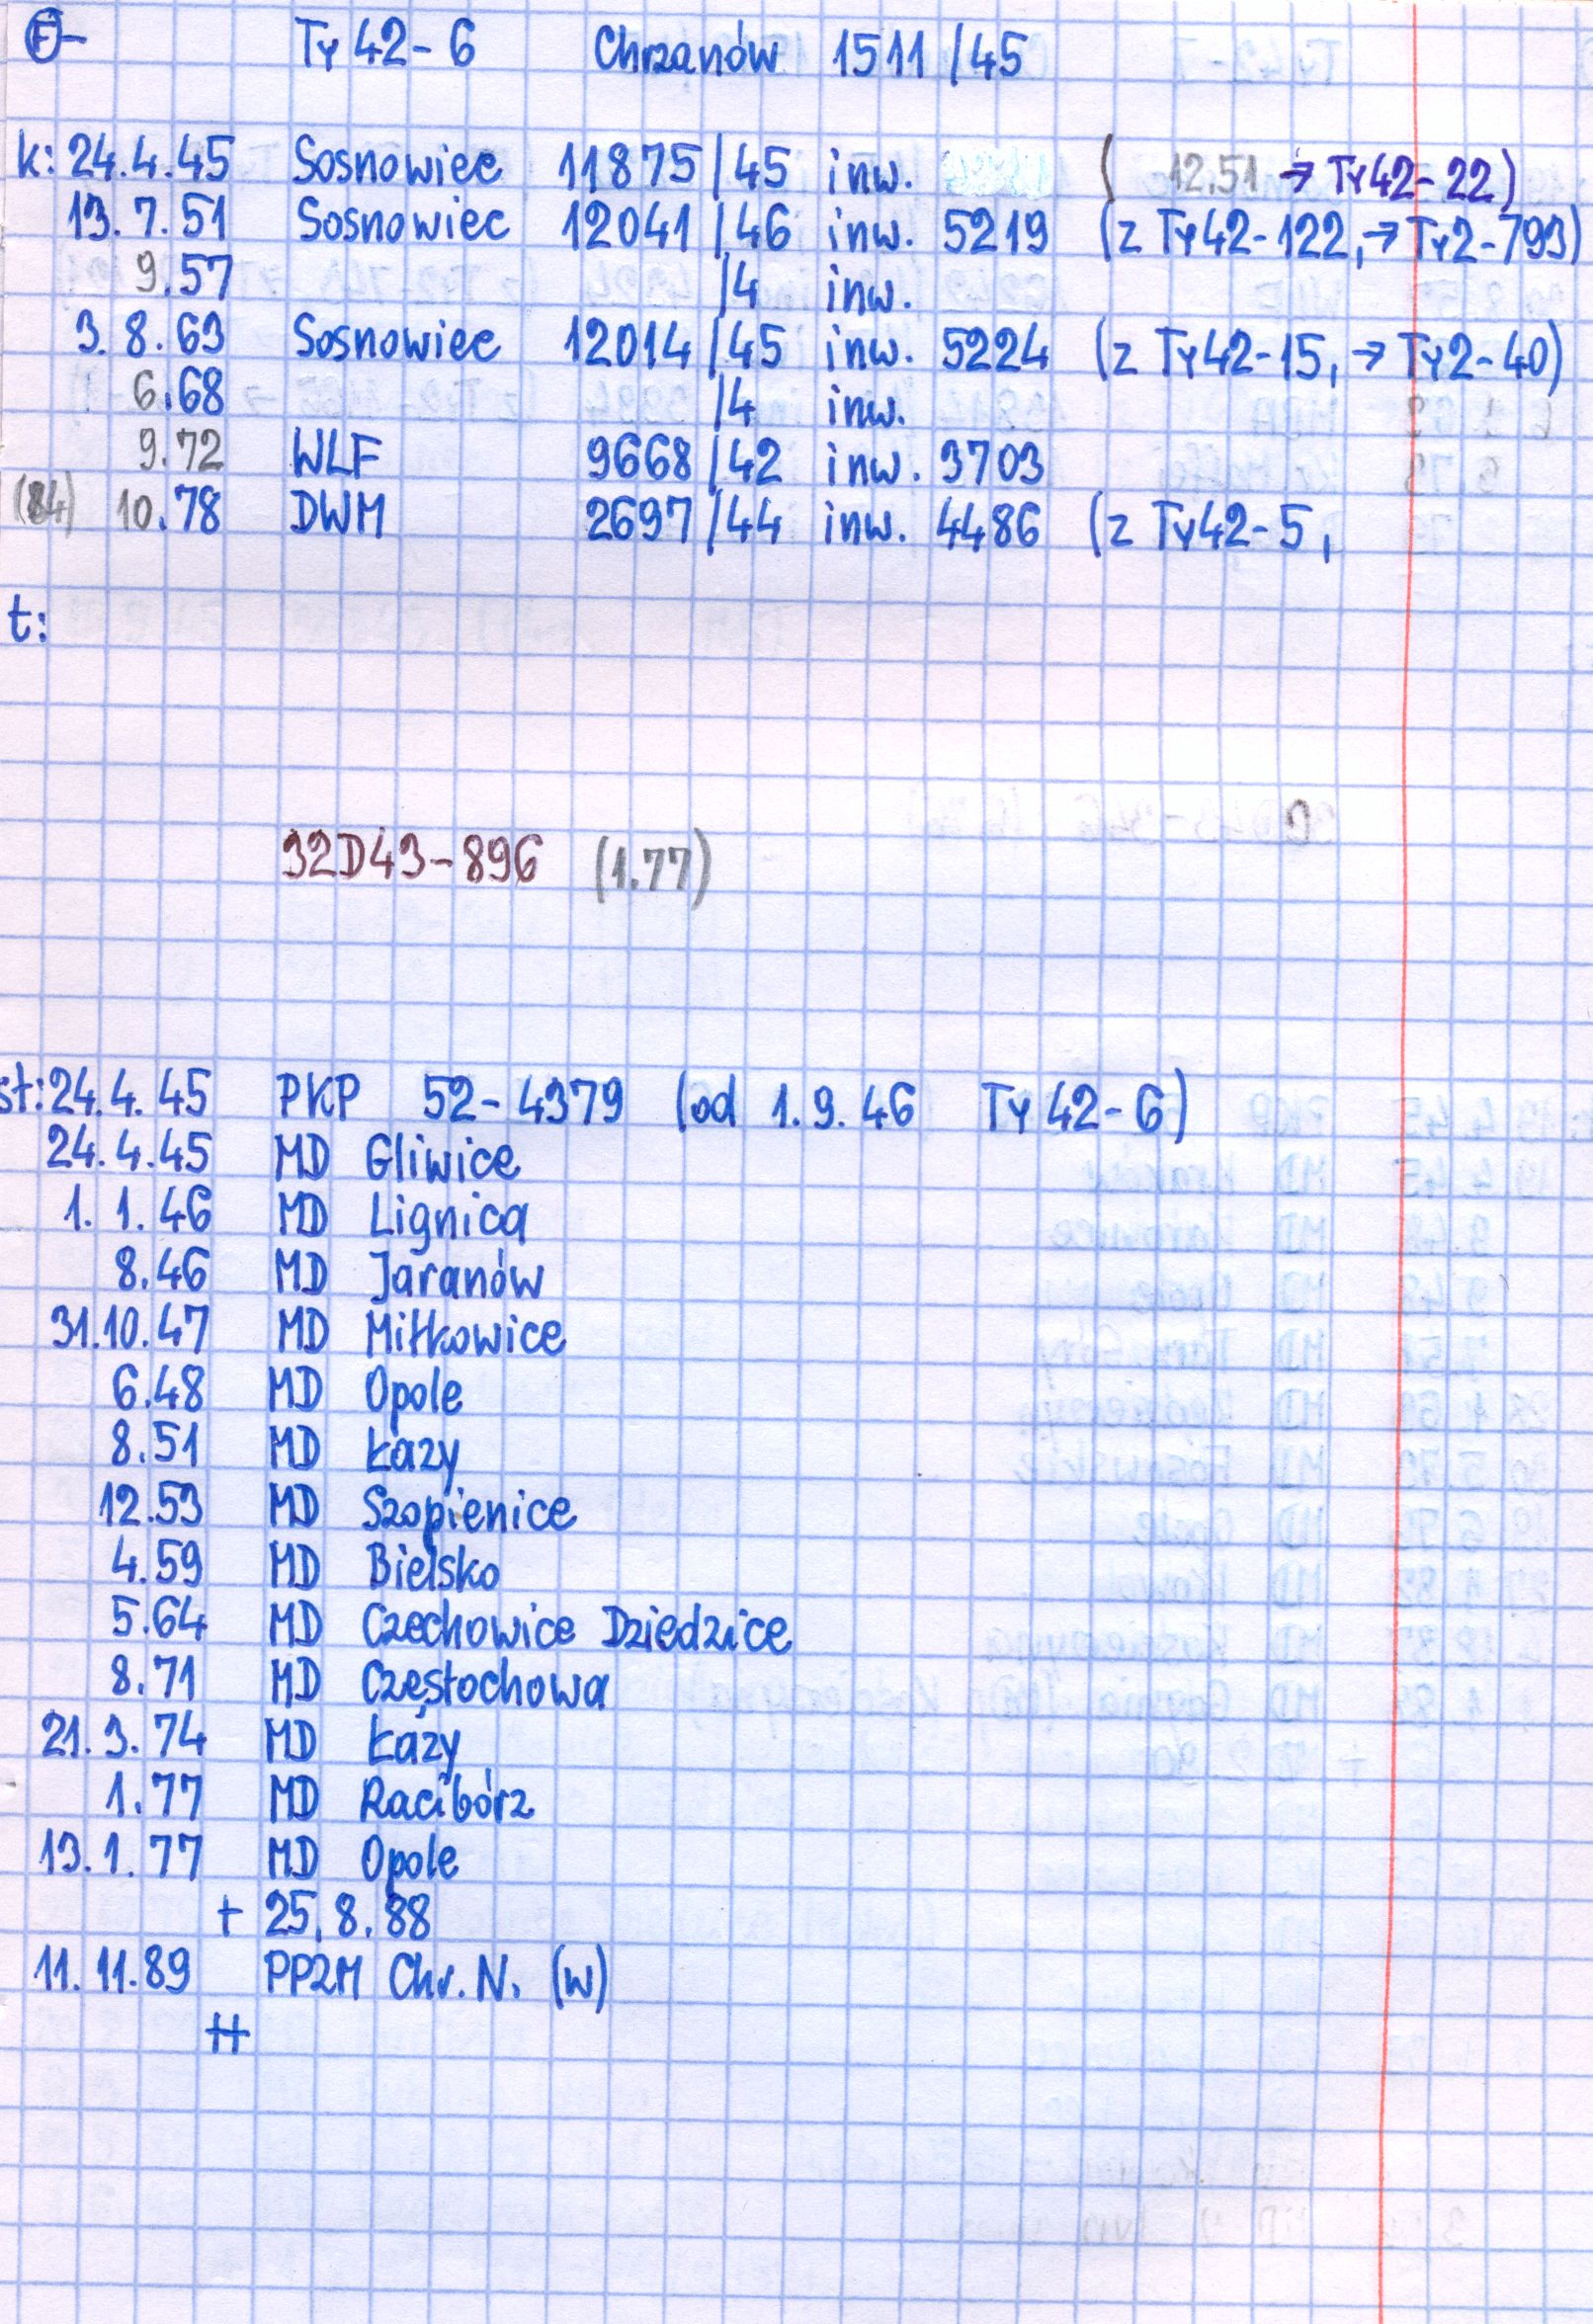 Ty 42-6 Chrzanów 1511/45
k: 24.4.45 Sosnowiec 11875/45 inw. ( 12.51 → Ty42-22)
13.7.51 Sosnowiec 12041/46 inw. 5219 (z Ty42-122, → Ty2-793)
9.57 /4 inw.
3.8.63 Sosnowiec 12014/45 inw. 5224 (z Ty42-15, → Ty2-40)
6.68 /4 inw.
9.72 WLF 9668/42 inw. 3703
(84) 10.78 DWM 2697/44 inw. 4486 (z Ty42-5,
t:
32D43-896 (1.77)
st: 24.4.45 PKP 52-4379 (od 1.9.46 Ty 42-6)
24.4.45 MD Gliwice
1.1.46 MD Lignica
8.46 MD Jaranów
31.10.47 MD Miłkowice
6.48 MD Opole
8.51 MD Łazy
12.53 MD Szopienice
4.59 MD Bielsko
5.64 MD Czechowice Dziedzice
8.71 MD Częstochowa
21.3.74 MD Łazy
1.77 MD Racibórz
13.1.77 MD Opole
+ 25.8.88
11.11.89 PPZM Chr. N. (w)
++